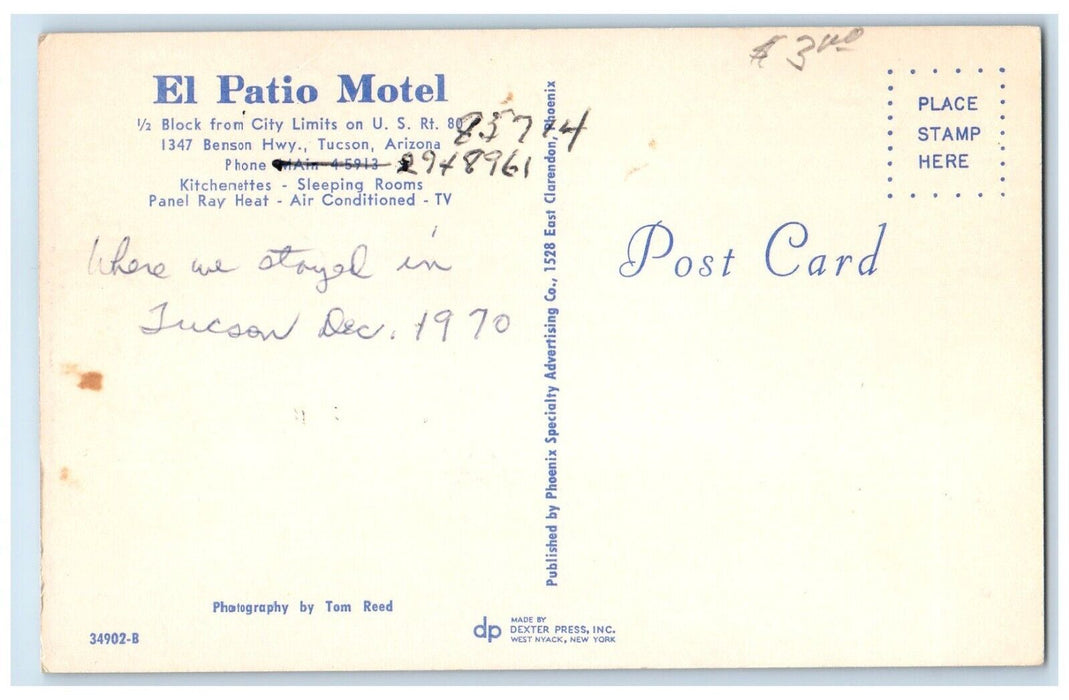 $ 3.00
El Patio Motel
½ Block from City Limits on U. S. Rt. 80
85714
1347 Benson Hwy., Tucson, Arizona
Phone MAin 4-5913
2948961
Kitchenettes - Sleeping Rooms
Panel Ray Heat - Air Conditioned - TV
Where we stayed in
Tucson Dec. 1970
Photography by Tom Reed
34902-B
Published by Phoenix Specialty Advertising Co., 1528 East Clarendon, Phoenix
dp
MADE BY
DEXTER PRESS, INC.
WEST NYACK, NEW YORK
PLACE
STAMP
HERE
Post Card